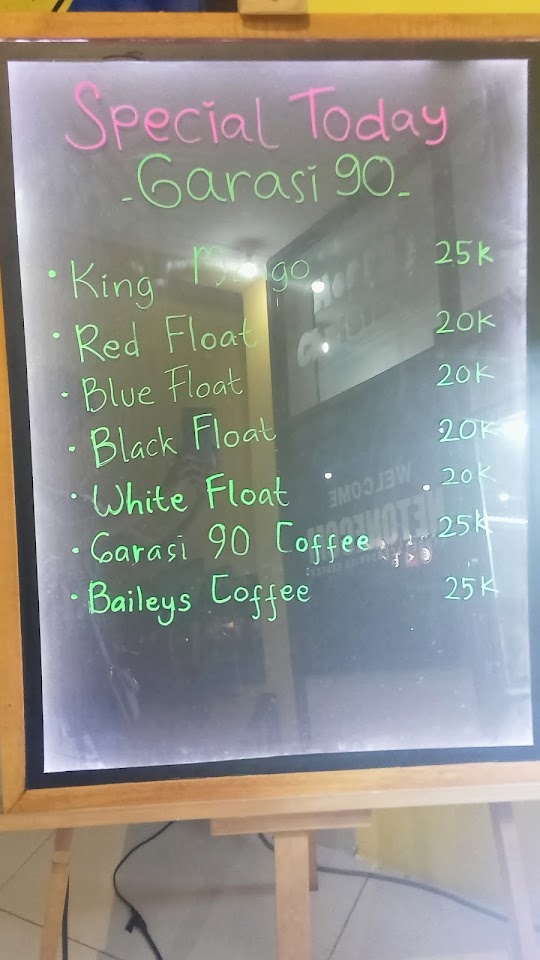 Special Today
- Garasi 90 -
• King Mango 25K
• Red Float 20K
• Blue Float 20K
• Black Float 20K
• White Float 20K
• Garasi 90 Coffee 25K
• Baileys Coffee 25K
WELCOME